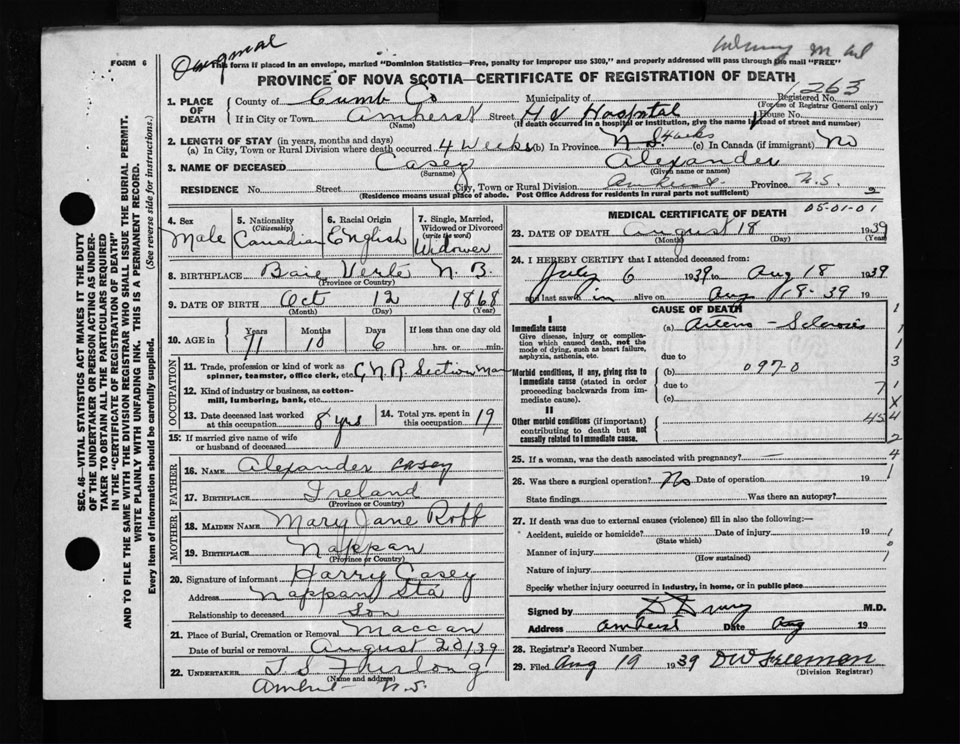 Original
FORM 6
This form if placed in an envelope, marked "Dominion Statistics—Free, penalty for improper use $300," and properly addressed will pass through the mails "FREE"
PROVINCE OF NOVA SCOTIA—CERTIFICATE OF REGISTRATION OF DEATH
263
1. PLACE OF DEATH
County of Cumb Co Municipality of Registered No.
(For use of Registrar General only)
If in City or Town Amherst Street H V Hospital House No.
(Name) (If death occurred in a hospital or institution, give the name instead of street and number)
2. LENGTH OF STAY (in years, months and days)
(a) In City, Town or Rural Division where death occurred 4 Weeks (b) In Province N.S. (c) In Canada (if immigrant) No
3. NAME OF DECEASED Casey Alexander
(Surname) (Given name or names)
RESIDENCE No. Street City, Town or Rural Division Province N.S.
(Residence means usual place of abode. Post Office Address for residents in rural parts not sufficient)
4. Sex Male
5. Nationality (Citizenship) Canadian
6. Racial Origin English
7. Single, Married, Widowed or Divorced (write the word) Widower
8. BIRTHPLACE Baie Verte N.B.
(Province or Country)
9. DATE OF BIRTH Oct 12 1868
(Month) (Day) (Year)
10. AGE in Years 71 Months 10 Days 6 If less than one day old hrs. or min.
OCCUPATION
11. Trade, profession or kind of work as spinner, teamster, office clerk, etc. C.N.R. Section Man
12. Kind of industry or business, as cotton-mill, lumbering, bank, etc.
13. Date deceased last worked at this occupation 8 yrs
14. Total yrs. spent in this occupation 19
15: If married give name of wife or husband of deceased
FATHER
16. NAME Alexander Casey
17. BIRTHPLACE Ireland
(Province or Country)
MOTHER
18. MAIDEN NAME Mary Jane Roff
19. BIRTHPLACE Nappan
(Province or Country)
20. Signature of informant Harry Casey
Address Nappan Sta
Relationship to deceased Son
21. Place of Burial, Cremation or Removal Maccan
Date of burial or removal August 20/39
22. UNDERTAKER T S Furlong
(Name and address)
N.S.
MEDICAL CERTIFICATE OF DEATH
05-01-01
23. DATE OF DEATH August 18 1939
(Month) (Day) (Year)
24. I HEREBY CERTIFY that I attended deceased from:
July 6 1939 to Aug 18 1939
and last saw him alive on Aug 18-39 19
CAUSE OF DEATH
I
Immediate cause (a) Arterio-Sclerosis
Give disease, injury or complication which caused death, not the mode of dying, such as heart failure, asphyxia, asthenia, etc.
due to
Morbid conditions, if any, giving rise to immediate cause (stated in order proceeding backwards from immediate cause).
(b) 097-0
due to
(c)
II
Other morbid conditions (if important) contributing to death but not causally related to immediate cause.
25. If a woman, was the death associated with pregnancy? —
26. Was there a surgical operation? No Date of operation 19
State findings Was there an autopsy?
27. If death was due to external causes (violence) fill in also the following:—
Accident, suicide or homicide? Date of injury 19
(State which)
Manner of injury
(How sustained)
Nature of injury
Specify whether injury occurred in industry, in home, or in public place
Signed by M.D.
Address Amherst Date Aug 19
28. Registrar's Record Number
29. Filed Aug 19 1939 D W Freeman
(Division Registrar)
SEC. 46—VITAL STATISTICS ACT MAKES IT THE DUTY
OF THE UNDERTAKER OR PERSON ACTING AS UNDER-
TAKER TO OBTAIN ALL THE PARTICULARS REQUIRED
IN THE "CERTIFICATE OF REGISTRATION OF DEATH"
AND TO FILE THE SAME WITH THE DIVISION REGISTRAR WHO SHALL ISSUE THE BURIAL PERMIT.
WRITE PLAINLY WITH UNFADING INK. THIS IS A PERMANENT RECORD.
Every item of Information should be carefully supplied. (See reverse side for instructions.)